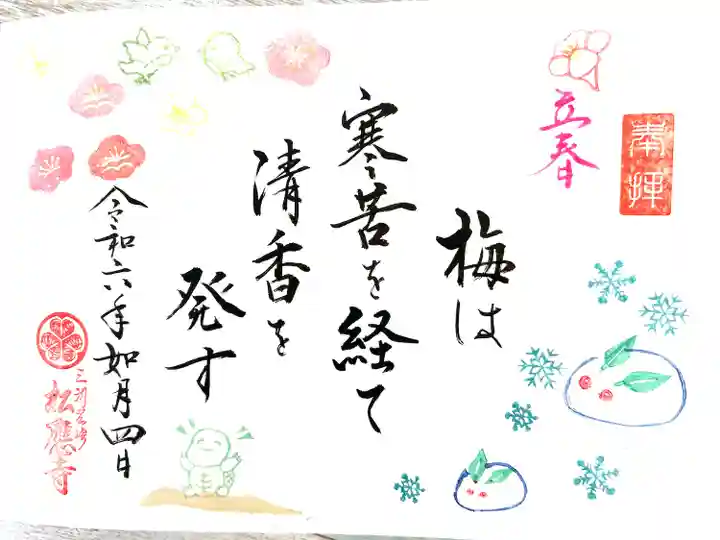 奉拝
立春
梅は
寒苦を経て
清香を
発す
令和六年如月四日
三河岡崎
松應寺